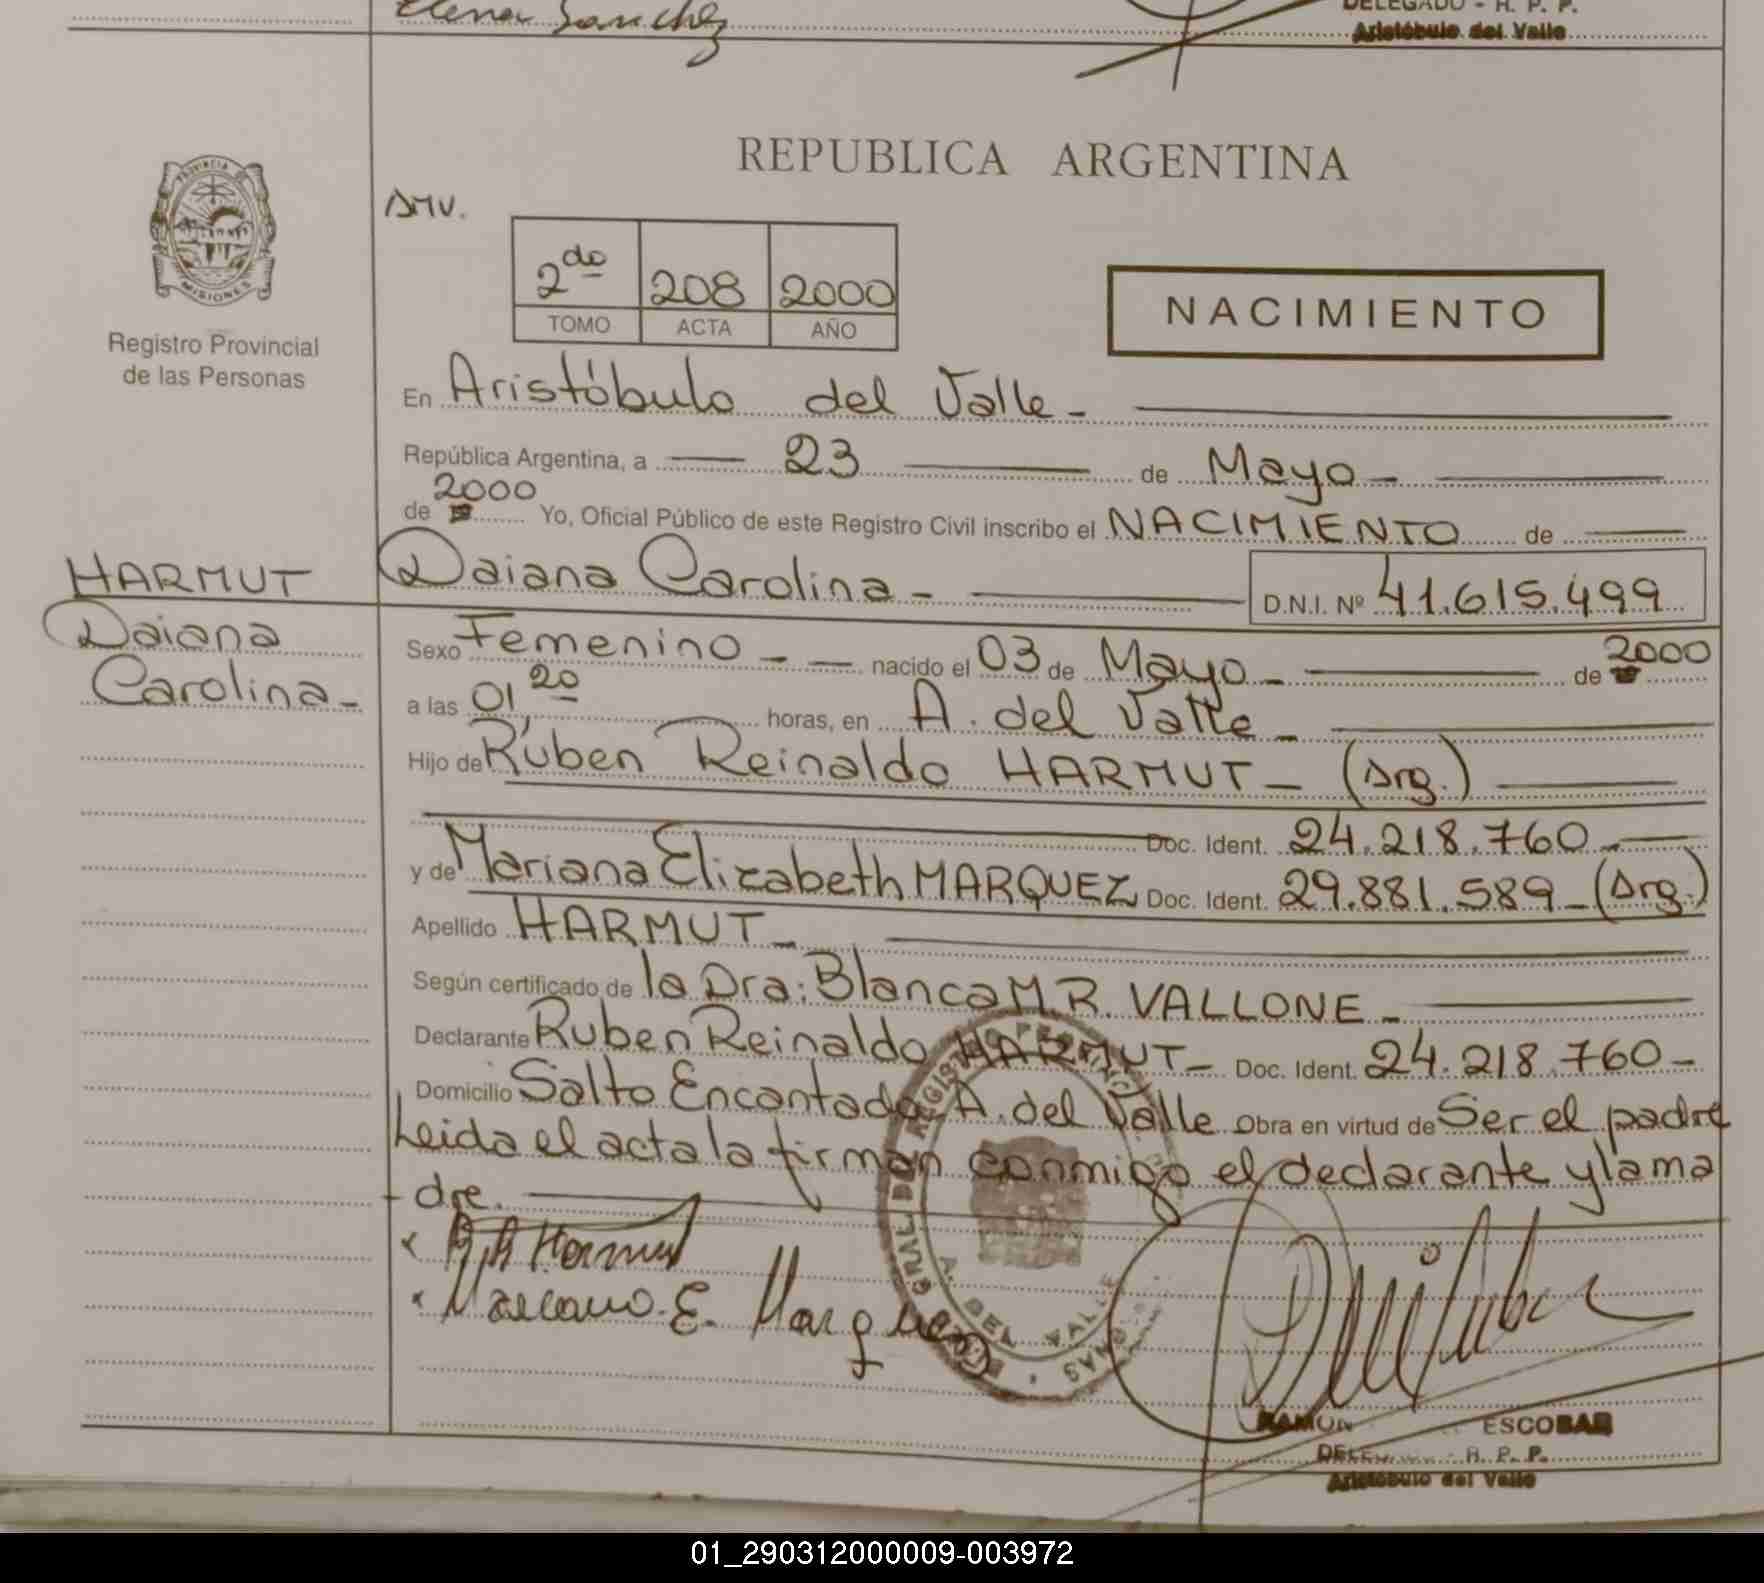 Elena Sanchez
DELEGADO - R. P. P.
Aristóbulo del Valle
PROVINCIA DE
MISIONES
Registro Provincial
de las Personas
REPUBLICA ARGENTINA
2do 208 2000
TOMO ACTA AÑO
NACIMIENTO
En Aristóbulo del Valle -
República Argentina, a 23 de Mayo -
de 2000 Yo, Oficial Público de este Registro Civil inscribo el NACIMIENTO de
HARMUT
Daiana
Carolina -
Daiana Carolina - D.N.I. Nº 41.615.499
Sexo Femenino - - nacido el 03 de Mayo - de 2000
a las 01,20 horas, en A. del Valle -
Hijo de Rúben Reinaldo HARMUT - (Arg.)
Doc. Ident. 24.218.760 -
y de Mariana Elizabeth MARQUEZ Doc. Ident. 29.881.589 - (Arg.)
Apellido HARMUT -
Según certificado de la Dra: Blanca M.R. VALLONE -
Declarante Ruben Reinaldo HARMUT - Doc. Ident. 24.218.760 -
Domicilio Salto Encantado A. del Valle Obra en virtud de Ser el padre
Leida el acta la firman conmigo el declarante y la ma
- dre.
A. DEL VALLE
RAMON ESCOBAR
R. P. P.
Aristóbulo del Valle
01_290312000009-003972